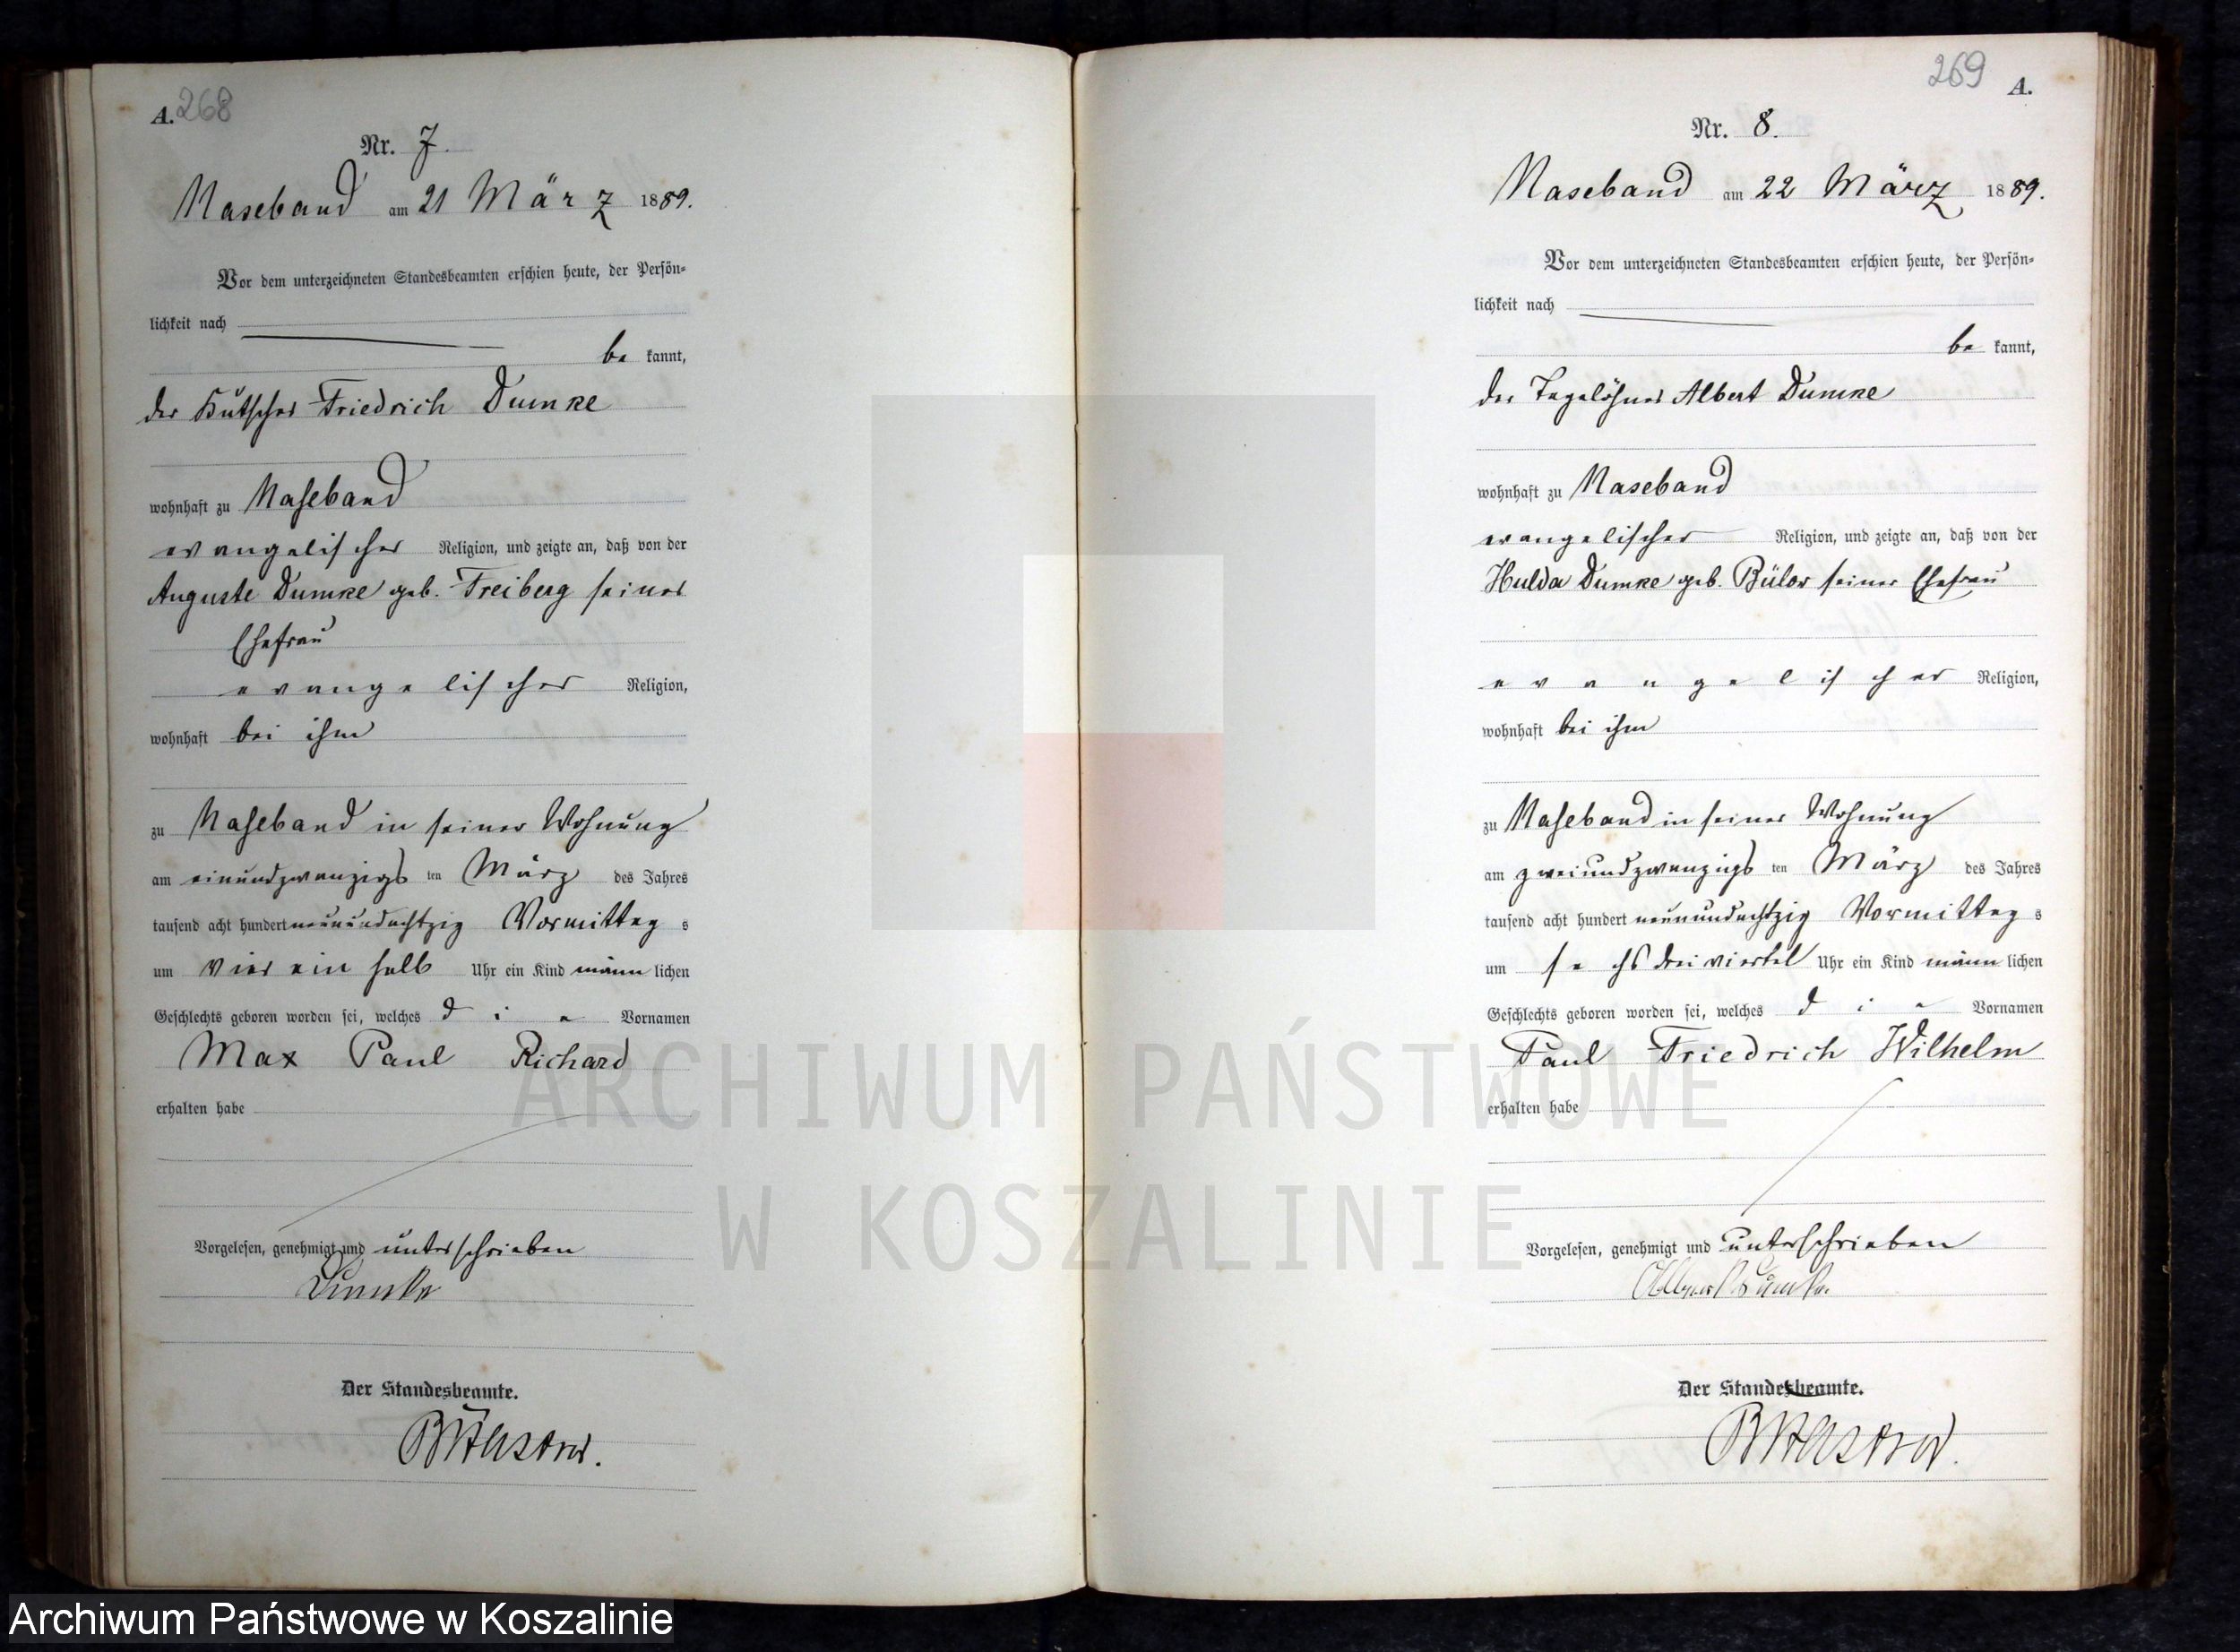 A. 268
Nr. 7.
Naseband am 21 März 1889.
Vor dem unterzeichneten Standesbeamten erschien heute, der Persön-
lichkeit nach
be kannt,
der Kutscher Friedrich Dumke
wohnhaft zu Naseband
evangelischer Religion, und zeigte an, daß von der
Auguste Dumke geb. Freiberg seiner
Ehefrau
evangelischer Religion,
wohnhaft bei ihm
zu Naseband in seiner Wohnung
am einundzwanzigs ten März des Jahres
tausend acht hundert neunundachtzig Vormittag s
um vier ein halb Uhr ein Kind männ lichen
Geschlechts geboren worden sei, welches die Vornamen
Max Paul Richard
erhalten habe
Vorgelesen, genehmigt und unterschrieben
Dumke
Der Standesbeamte.
269 A.
Nr. 8.
Naseband am 22 März 1889.
Vor dem unterzeichneten Standesbeamten erschien heute, der Persön-
lichkeit nach
be kannt,
der Tagelöhner Albert Dumke
wohnhaft zu Naseband
evangelischer Religion, und zeigte an, daß von der
Hulda Dumke geb. Bülow seiner Ehefrau
evangelischer Religion,
wohnhaft bei ihm
zu Naseband in seiner Wohnung
am zweiundzwanzigs ten März des Jahres
tausend acht hundert neunundachtzig Vormittag s
um sechs dreiviertel Uhr ein Kind männ lichen
Geschlechts geboren worden sei, welches die Vornamen
Paul Friedrich Wilhelm
erhalten habe
Vorgelesen, genehmigt und unterschrieben
Albert Dumke
Der Standesbeamte.
ARCHIWUM PAŃSTWOWE
W KOSZALINIE
Archiwum Państwowe w Koszalinie